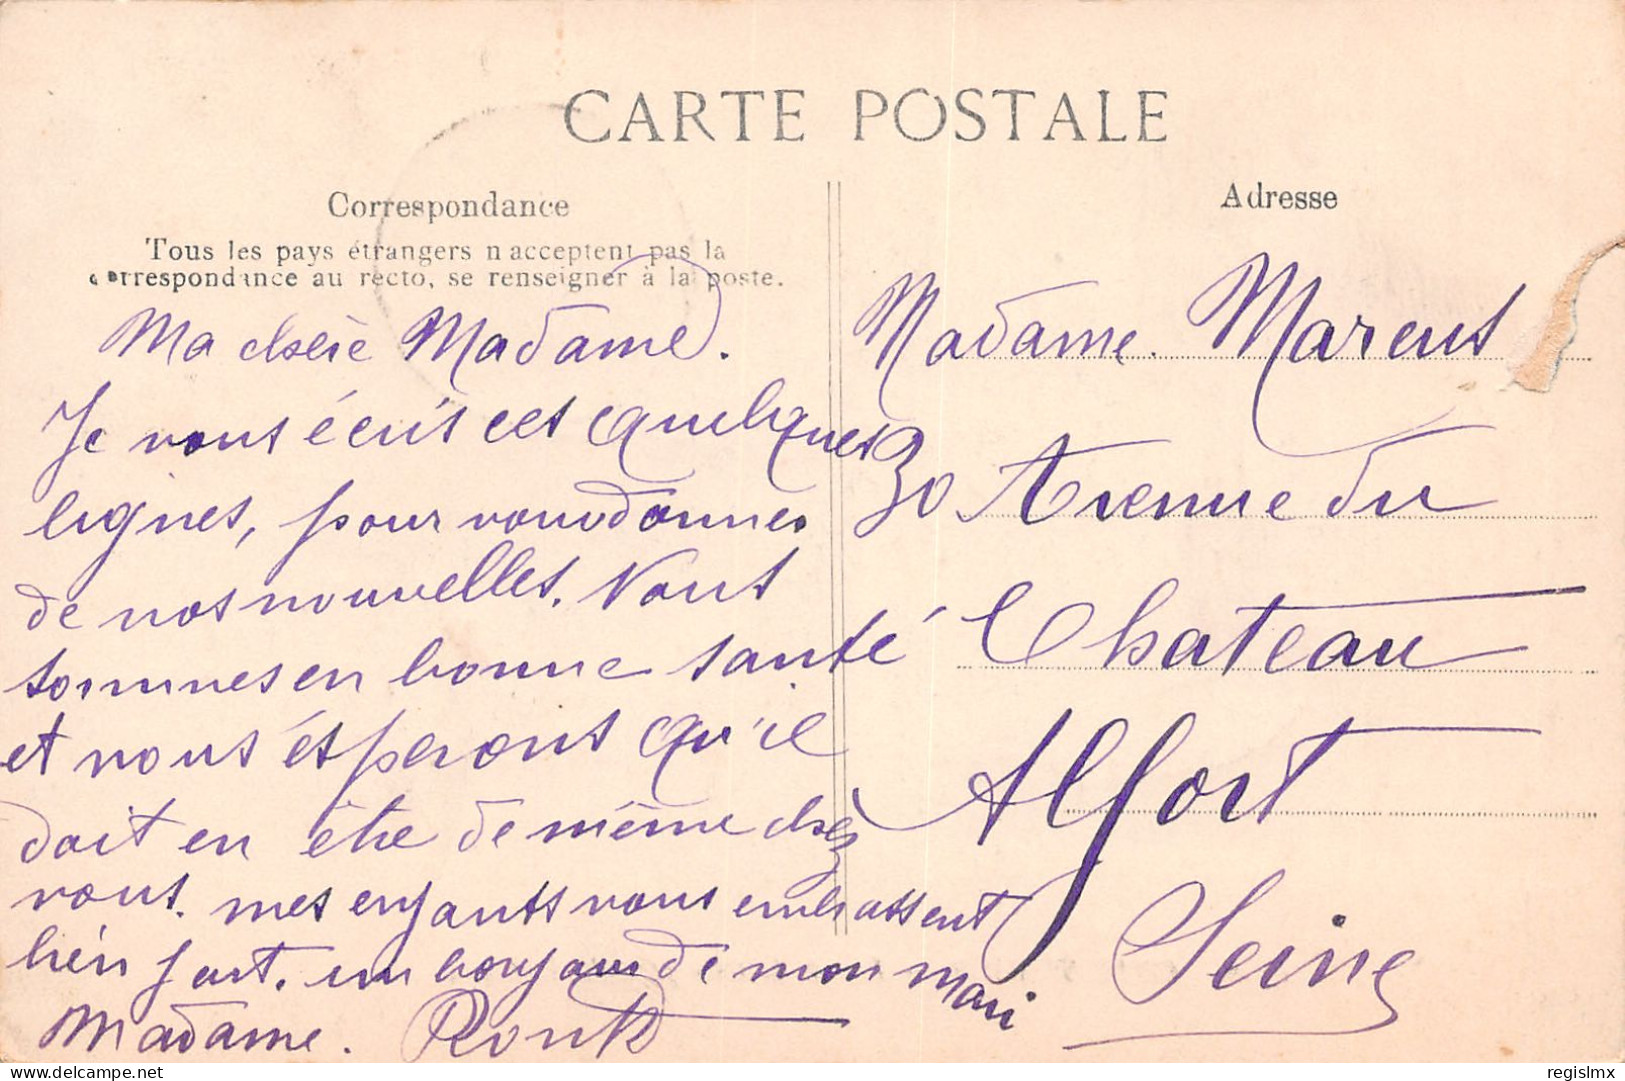 CARTE POSTALE
Correspondance
Tous les pays étrangers n'acceptent pas la
correspondance au recto, se renseigner à la poste.
Ma chère Madame.
Je vous écris ces quelques
lignes, pour vous donner
de nos nouvelles. Nous
sommes en bonne santé
et nous éspérons qu'il
doit en être de même chèz
vous. mes enfants vous embrassent
bien fort. un bonjour de mon mari
Madame.
Adresse
Madame.
30 Avenue du
Chateau
Alfort
Seine
delcampe.net
regislmx